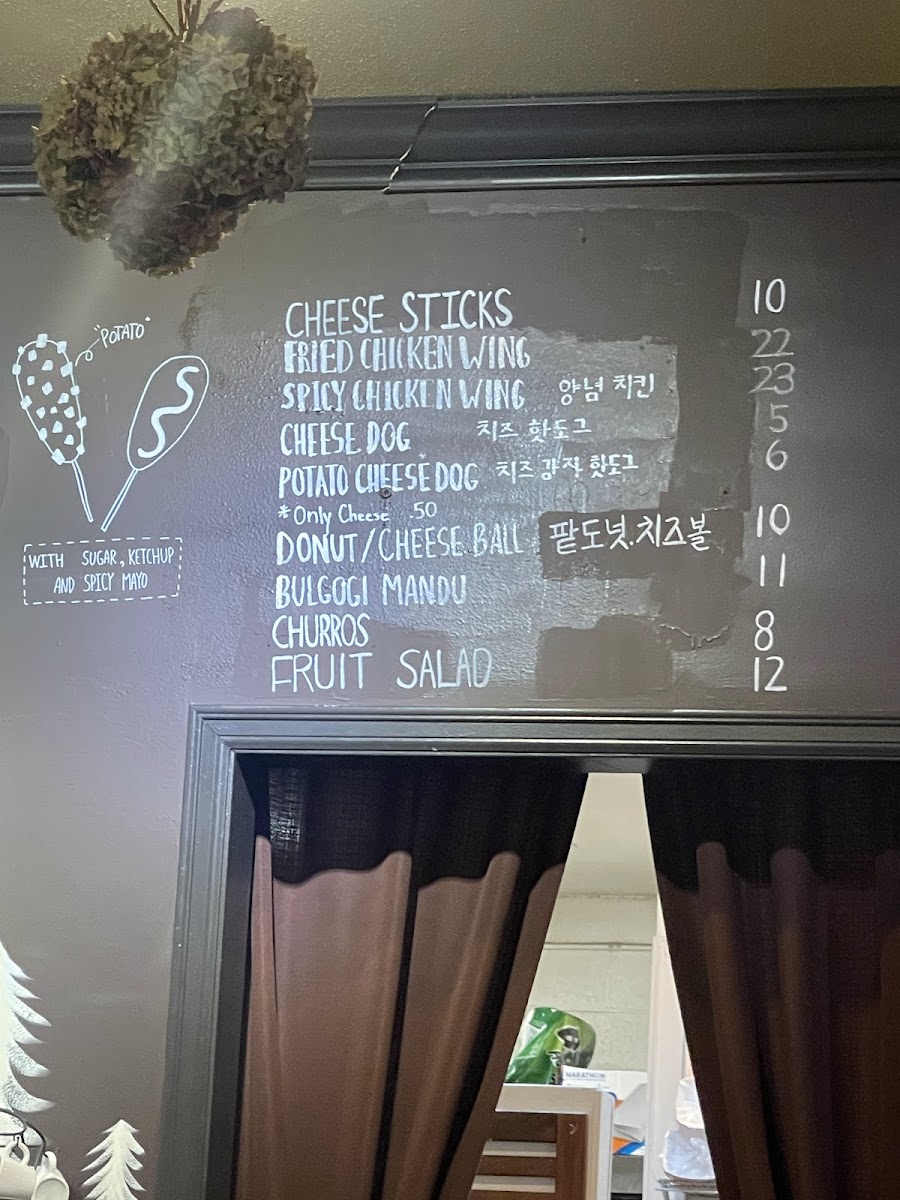 CHEESE STICKS 10
FRIED CHICKEN WING 22
SPICY CHICKEN WING 양념 치킨 23
CHEESE DOG 치즈 핫도그 5
POTATO CHEESE DOG 치즈 감자 핫도그 6
*Only Cheese .50
DONUT/CHEESE BALL 팥도넛.치즈볼 10
BULGOGI MANDU 11
CHURROS 8
FRUIT SALAD 12
"POTATO"
WITH SUGAR, KETCHUP
AND SPICY MAYO
MARATHON